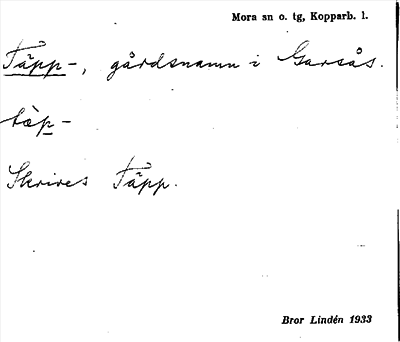 Mora sn o. tg, Kopparb. l.
Täpp-, gårdsnamn i Garsås.
tæ̀p-
Skrives Täpp.
Bror Lindén 1933